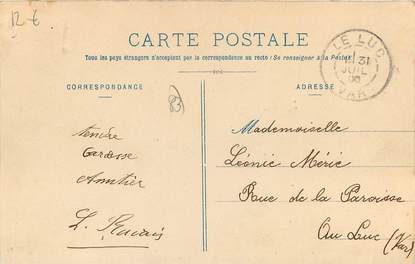 12 €
CARTE POSTALE
Tous les pays étrangers n'acceptent pas la correspondance au recto (Se renseigner à la Poste).
CORRESPONDANCE
ADRESSE
LE LUC
31
JUIL
VAR
83
tendre
Caresse
Amitier
Mademoiselle
Léonie Méric
Rue de la Paroisse
Au Luc (Var)